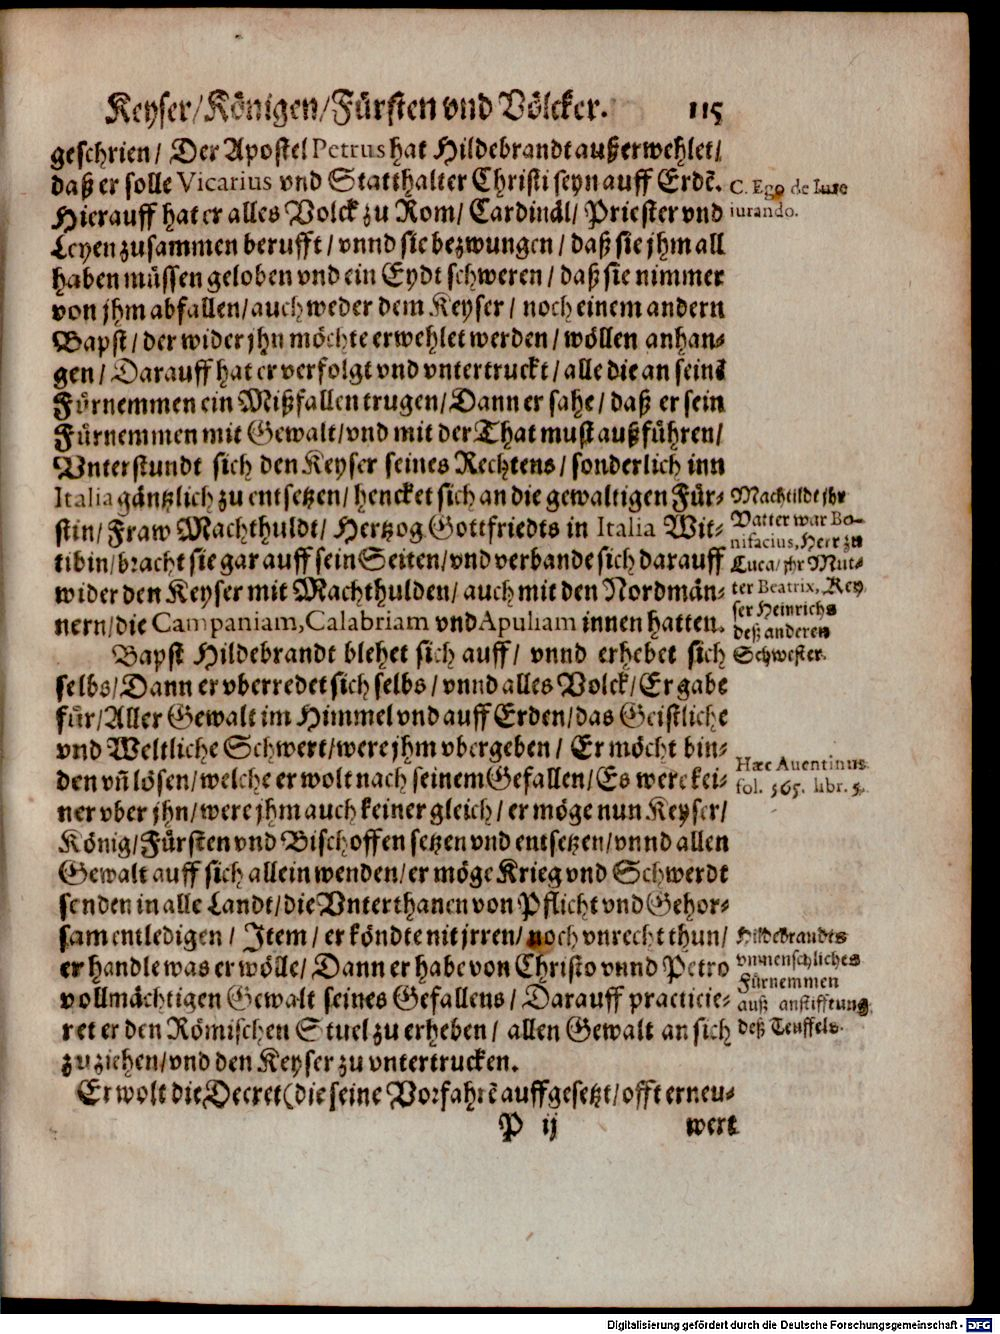 Keyser/Königen/Fürsten vnd Völcker. 115
geschrien/ Der Apostel Petrus hat Hildebrandt außerwehlet/
daß er solle Vicarius vnd Statthalter Christi seyn auff Erdē.
Hierauff hat er alles Volck zu Rom/ Cardinäl/ Priester vnd
Leyen zusammen berufft/ vnnd sie bezwungen/ daß sie jhm all
haben müssen geloben vnd ein Eydt schweren/ daß sie nimmer
von jhm abfallen/auch weder dem Keyser/ noch einem andern
Bapst/ der wider jhn möchte erwehlet werden/ wöllen anhan-
gen/ Darauff hat er verfolgt vnd vntertruckt/ alle die an seinē
Fürnemmen ein Mißfallen trugen/Dann er sahe/ daß er sein
Fürnemmen mit Gewalt/vnd mit der That must außführen/
Vnterstundt sich den Keyser seines Rechtens/ sonderlich inn
Italia gäntzlich zu entsetzen/ hencket sich an die gewaltigen Für-
stin/ Fraw Machthuldt/ Hertzog Gottfriedts in Italia Wit-
tibin/bracht sie gar auff sein Seiten/vnd verbande sich darauff
wider den Keyser mit Machthulden/ auch mit den Nordmän-
nern/die Campaniam, Calabriam vnd Apuliam innen hatten.
Bapst Hildebrandt blehet sich auff/ vnnd erhebet sich
selbs/Dann er vberredet sich selbs/ vnnd alles Volck/Er gabe
für/Aller Gewalt im Himmel vnd auff Erden/das Geistliche
vnd Weltliche Schwert/were jhm vbergeben/ Er möcht bin-
den vñ lösen/welche er wolt nach seinem Gefallen/Es were kei-
ner vber jhn/were jhm auch keiner gleich/ er möge nun Keyser/
König/Fürsten vnd Bischoffen setzen vnd entsetzen/vnnd allen
Gewalt auff sich allein wenden/er möge Krieg vnd Schwerdt
senden in alle Landt/die Vnterthanen von Pflicht vnd Gehor-
sam entledigen/ Item/ er köndte nit jrren/ noch vnrecht thun/
er handle was er wölle/ Dann er habe von Christo vnnd Petro
vollmächtigen Gewalt seines Gefallens/ Darauff practicie-
ret er den Römischen Stuel zu erheben/ allen Gewalt an sich
zu ziehen/vnd den Keyser zu vntertrucken.
Er wolt die Decret (die seine Vorfahrē auffgesetzt/offt erneu-
P ij wert
C. Ego de Iure
iurando.
Machtildt jhr
Vatter war Bo-
nifacius, Herr zu
Luca/ jhr Mut-
ter Beatrix, Key
ser Heinrichs
deß anderen
Schwester.
Hæc Auentinus
fol. 565. libr. 5.
Hildebrandts
vnmenschliches
Fürnemmen
auß anstifftung
deß Teuffels.
Digitalisierung gefördert durch die Deutsche Forschungsgemeinschaft - DFG